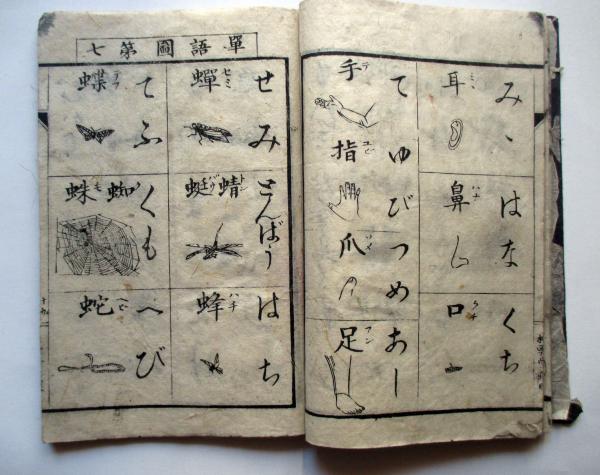 みゝ
耳
ミヽ
はな
鼻
ハナ
くち
口
クチ
て
手
テ
ゆび
指
ユビ
つめ
爪
ツメ
あし
足
アシ
單語圖第七
せみ
蟬
セミ
とんばう
蜻蜓
トンバウ
はち
蜂
ハチ
てふ
蝶
テフ
くも
蜘蛛
クモ
へび
蛇
ヘビ